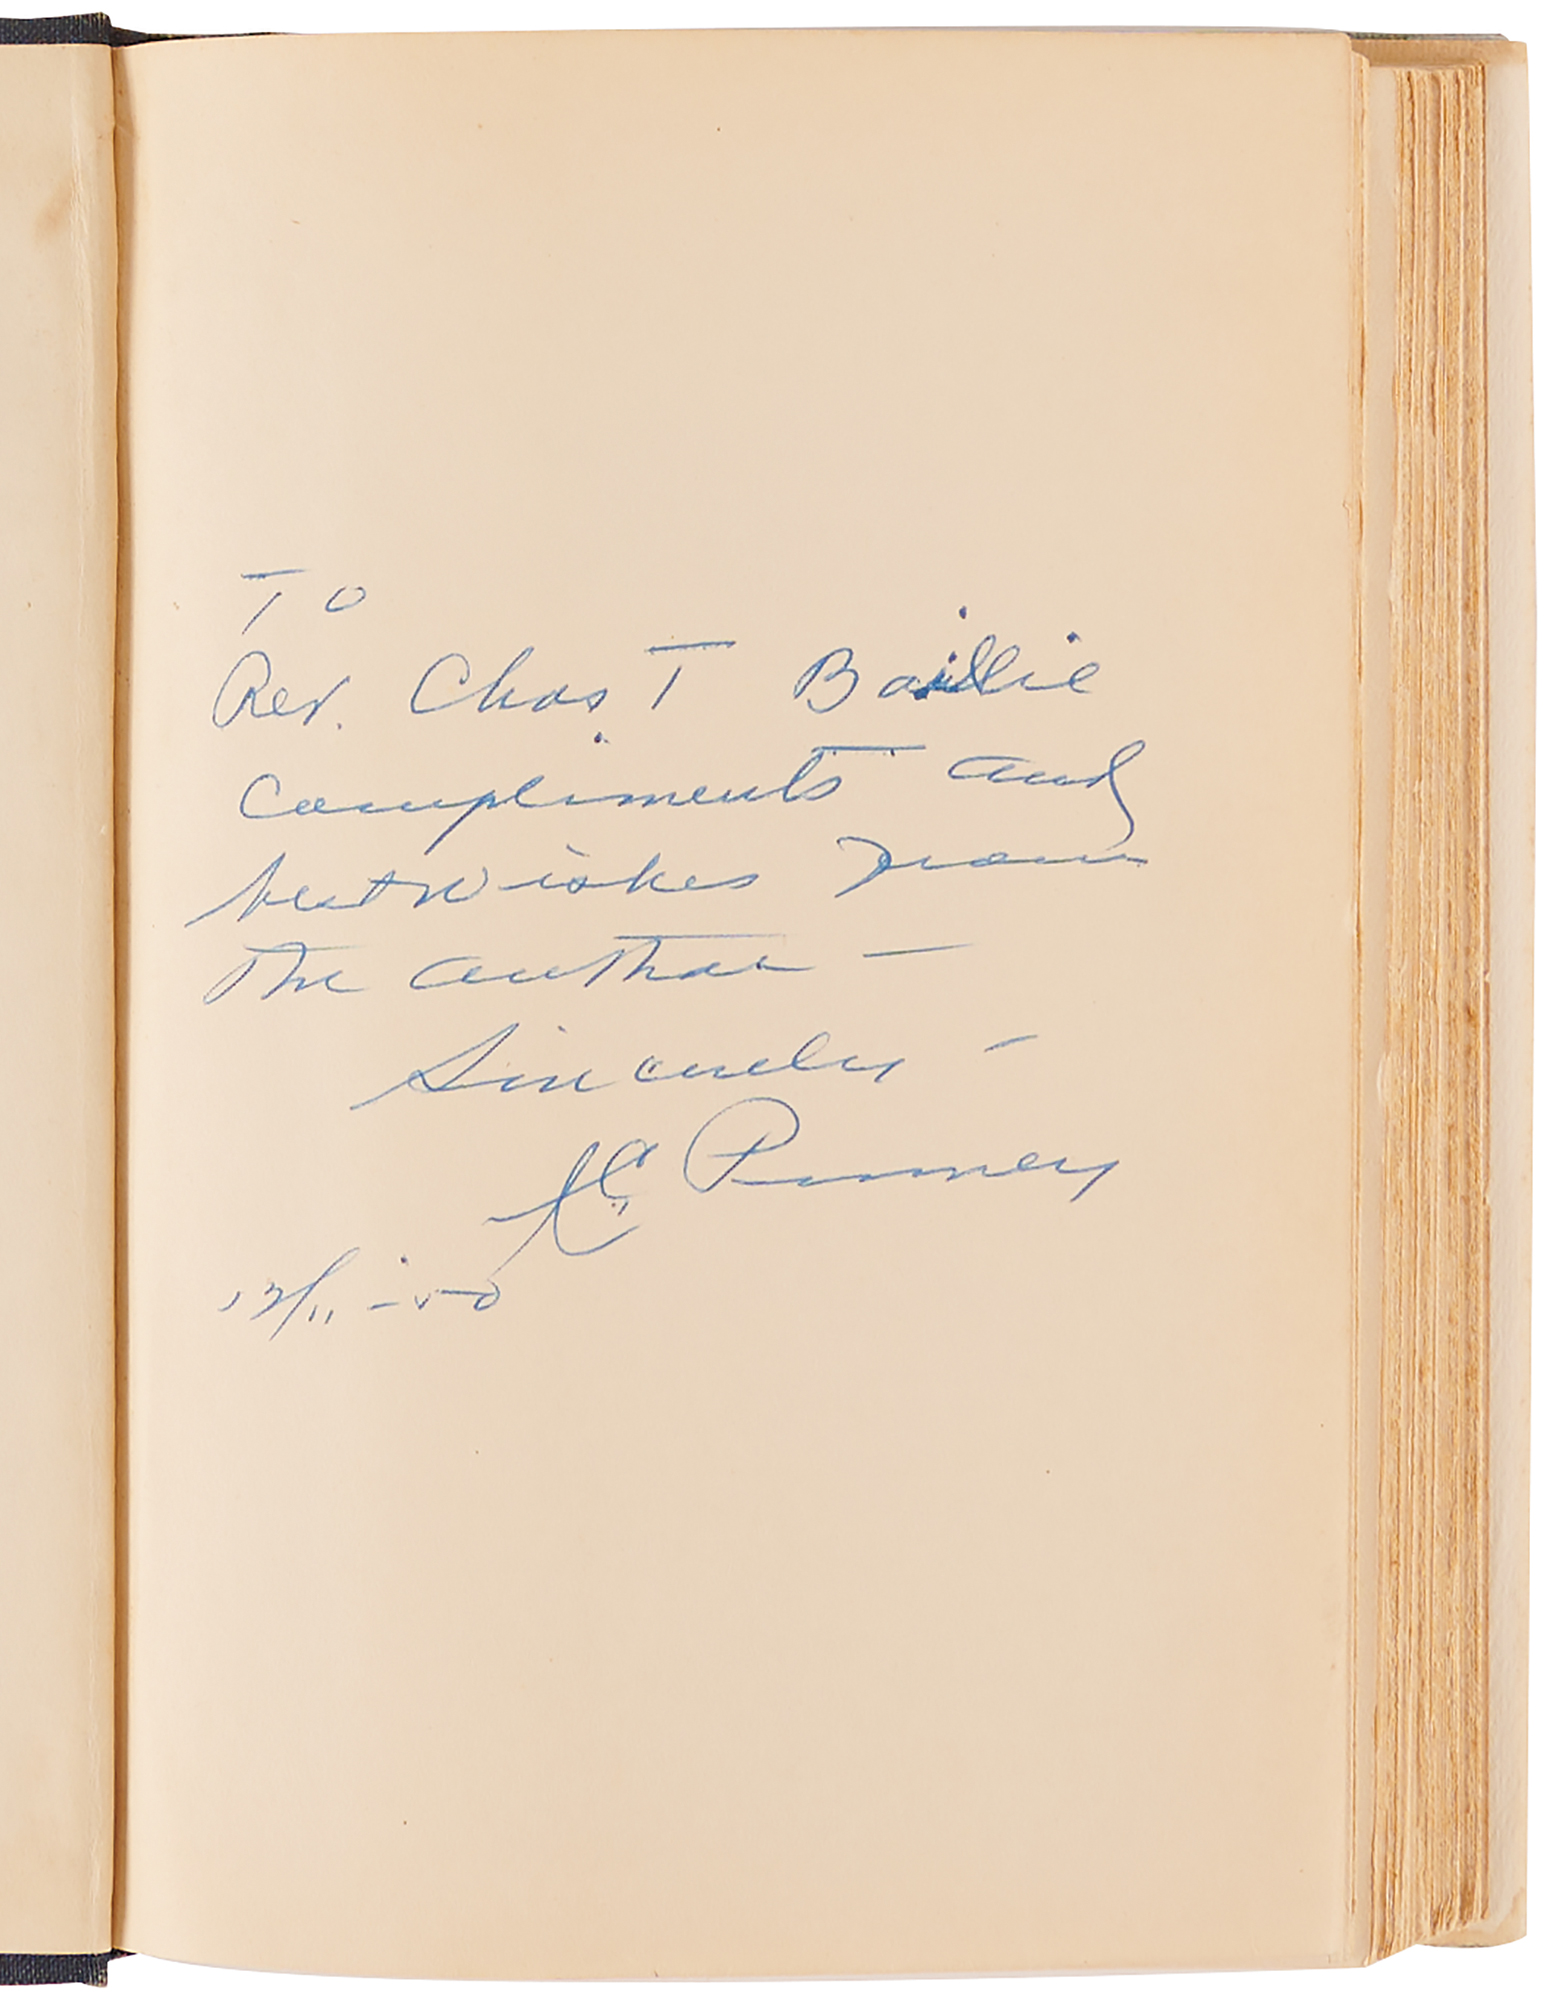 To
Rev. Chas T Baillie
compliments and
best wishes from
the author —
Sincerely —
J C Penney
12/11 - 50